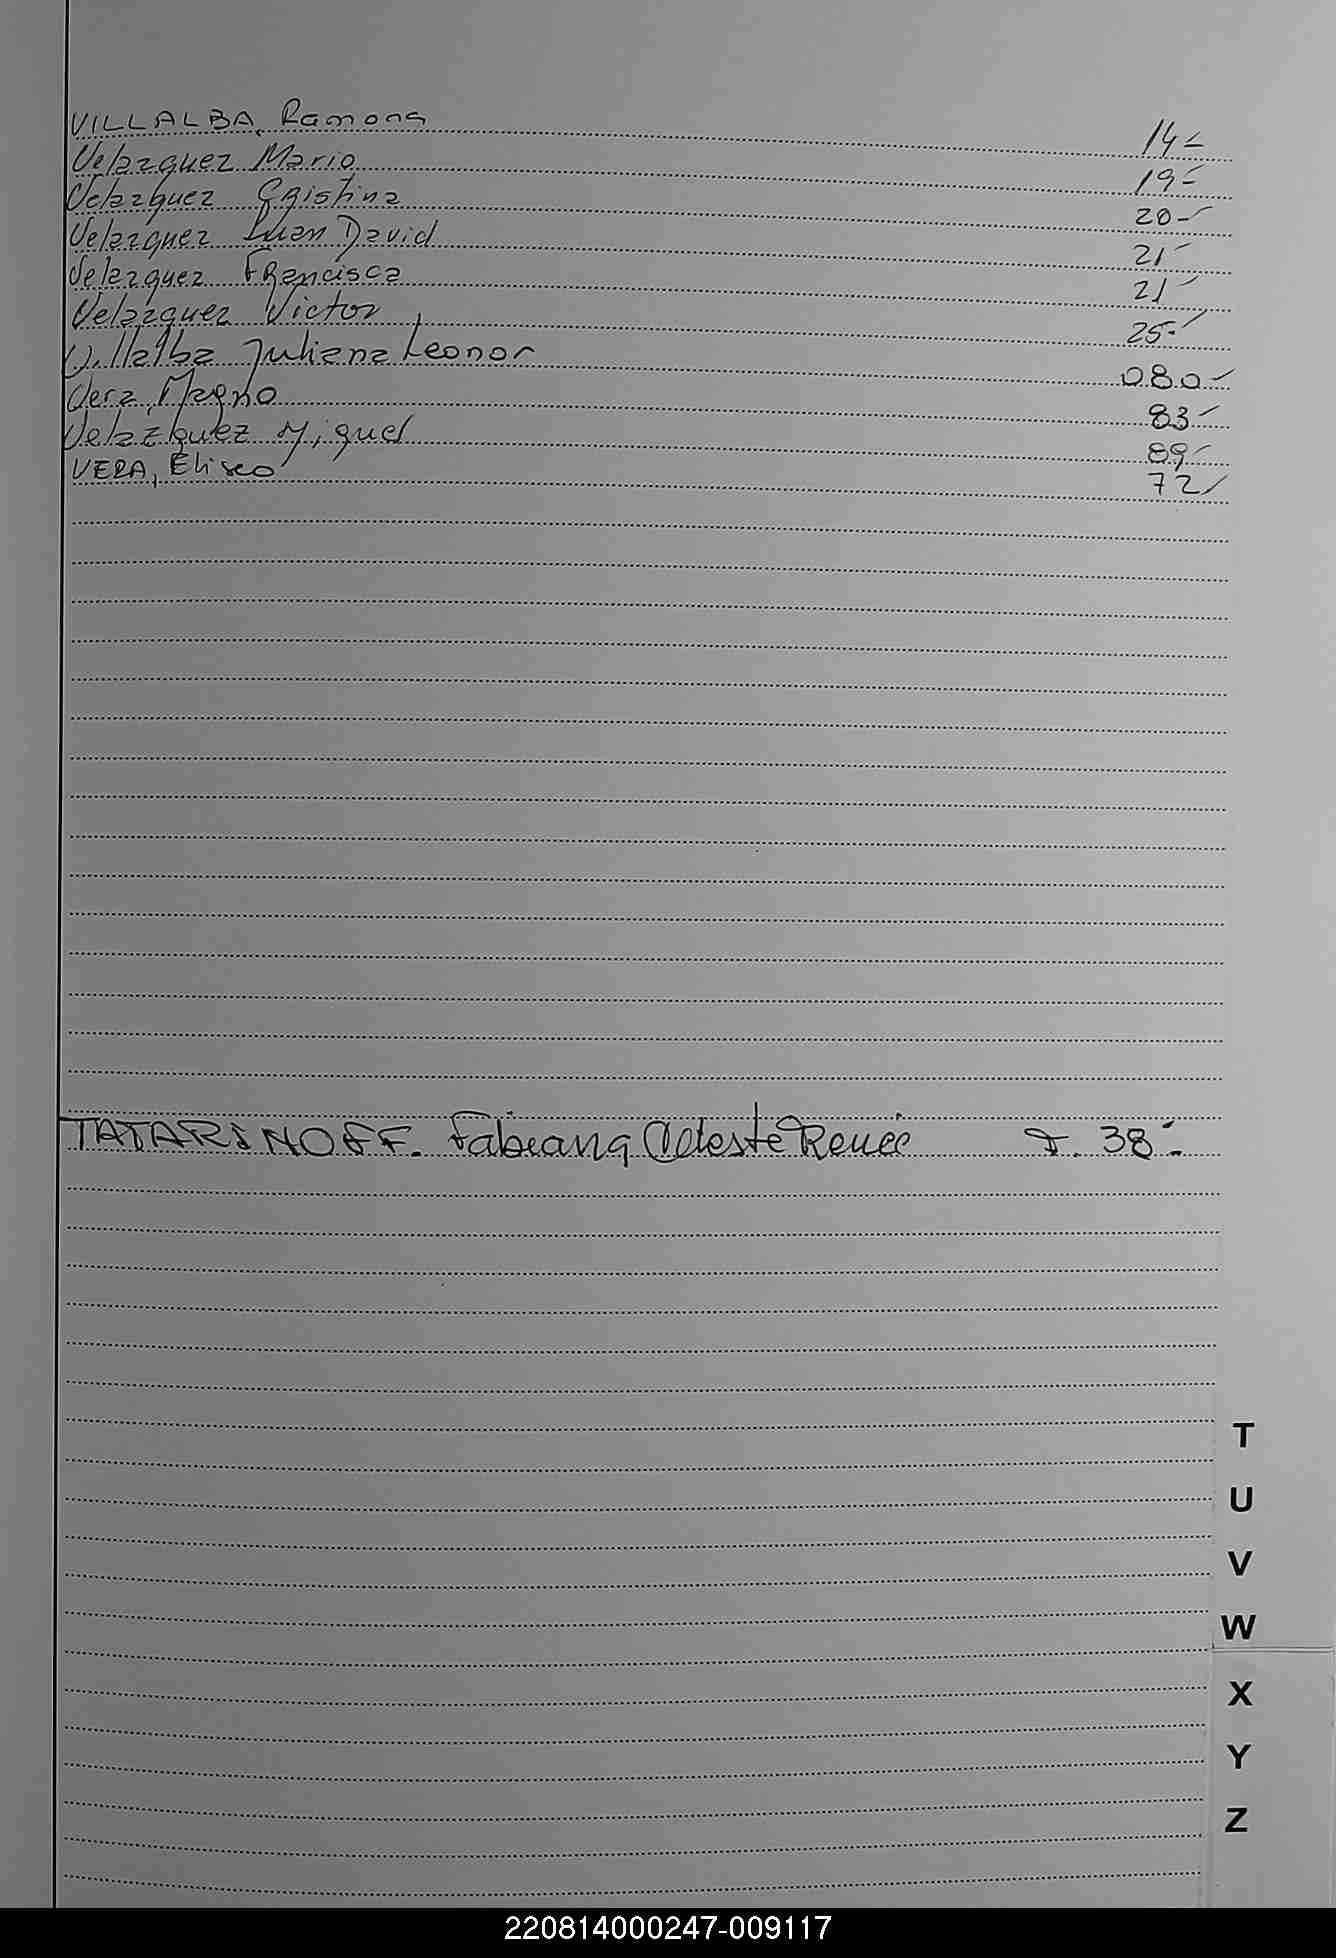 VILLALBA, Ramona 14-
Velazquez Mario 19-
Velazquez Cristina 20-
Velazquez Juan David 21-
Velazquez Francisca 21-
Velazquez Victor 25-
Villalba Juliana Leonor 080-
Vera, Magno 83-
Velazquez Miguel 89-
VERA, Eliseo 72
TATARINOFF. Fabiana Celeste Reneé F. 38-
T
U
V
W
X
Y
Z
220814000247-009117